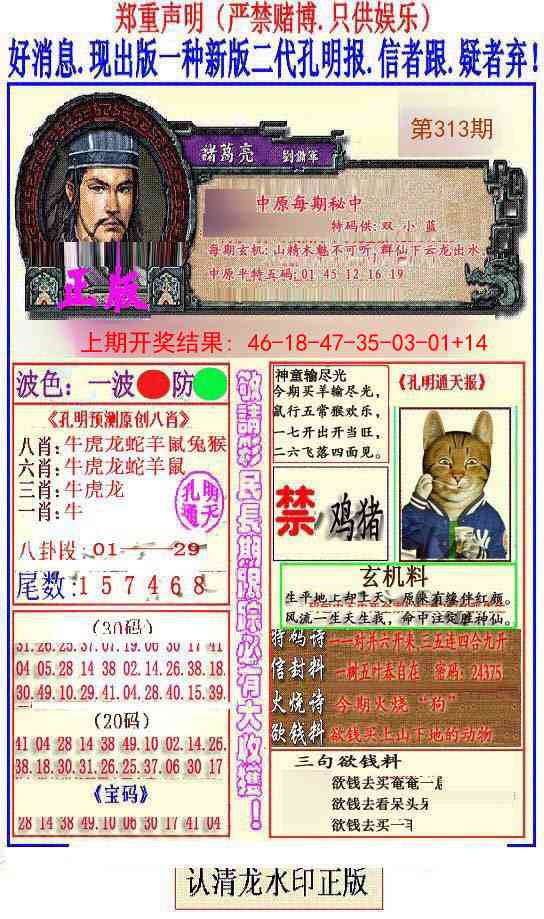 郑重声明（严禁赌博.只供娱乐）
好消息.现出版一种新版二代孔明报.信者跟.疑者弃!
第313期
諸葛亮 劉備軍
中原每期秘中
特码供: 双 小 蓝
每期玄机: 山精木魅不可听, 群仙下云龙出水
中原平特五码: 01 45 12 16 19
正版
上期开奖结果: 46-18-47-35-03-01+14
波色: 一波 防
《孔明预测原创八肖》
八肖: 牛虎龙蛇羊鼠兔猴
六肖: 牛虎龙蛇羊鼠
三肖: 牛虎龙
一肖: 牛
孔明
通天
八卦段: 01——29
尾数: 1 5 7 4 6 8
(30码)
31.26.25.37.07.19.06 30 17 41
04 05.28 14 38 02.14.26.38.18.
30.49.10.29.41.04.28.40.15.39.
(20码)
41 04 28 14 38 49.10 02.14.26.
38.18.30.31.26.25.37.06 30 17
《宝码》
28 14 38 49.10 06 30 17 41 04
敬請彩民長期跟踪必有大收獲！
神童输尽光
今期买羊输尽光，
鼠行五常猴欢乐，
一七开出开当旺，
二六飞落四面见。
《孔明通天报》
禁 鸡猪
玄机料
生平地上却生天、原来有缘伴红颜。
风流一生天生我，命中注定胜神仙。
特码诗 一一对井六开来 三五连四合九开
信封料 一树五叶春自在 密码: 24375
火烧诗 今期火烧“狗”
欲钱料 欲钱买上山下地的动物
三句欲钱料
欲钱去买奄奄一
欲钱去看呆头
欲钱去买一
认清龙水印正版